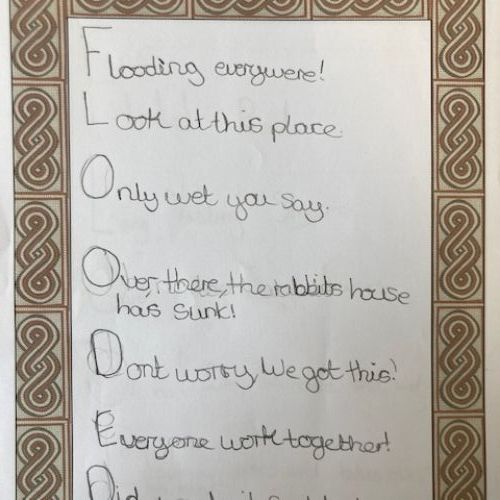 Flooding everywere!
Look at this place.
Only wet you say.
Over there, the rabbits house
has sunk!
Dont worry, We got this!
Everyone work together!